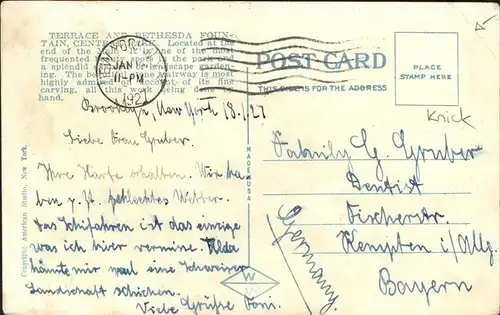 TERRACE AND BETHESDA FOUN-
TAIN, CENTRAL PARK. Located at the
end of the Mall. It is one of the most
frequented beauty spots in the park and
a splendid landscape garden-
ing. The stairway is most
highly admired on account of its fine
carving, all this work being done by
hand.
POST CARD
THIS SIDE IS FOR THE ADDRESS
PLACE
STAMP HERE
JAN
PM
192
Knick
Brooklyn, New York 18.1.27
Liebe Frau Gruber.
Ihre Karte erhalten. Wir ha-
ben z. Zt. schlechtes Wetter.
das Schifahren ist das einzige
was ich hier vermisse. Alda
könnte mir mal eine Schweizer
Landschaft schicken.
Viele Grüße Toni.
Family G. Gruber
Dentist
Fischerstr.
Kempten i/Allg.
Bayern
Germany.
MADE IN USA
W
Copyright American Studio, New York.